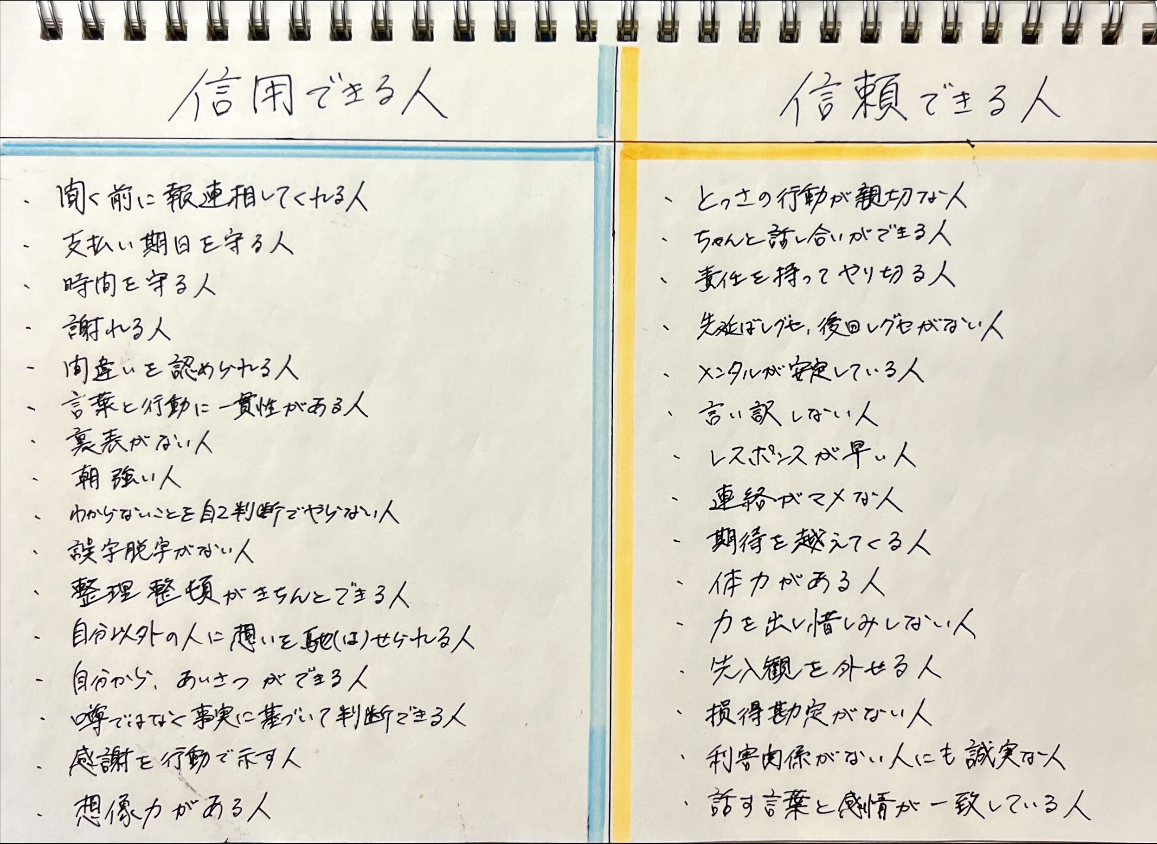 信用できる人
・聞く前に報連相してくれる人
・支払い期日を守る人
・時間を守る人
・謝れる人
・間違いを認められる人
・言葉と行動に一貫性がある人
・裏表がない人
・朝強い人
・わからないことを自己判断でやらない人
・誤字脱字がない人
・整理整頓がきちんとできる人
・自分以外の人に想いを馳(は)せられる人
・自分から、あいさつができる人
・噂ではなく事実に基づいて判断できる人
・感謝を行動で示す人
・想像力がある人
信頼できる人
・とっさの行動が親切な人
・ちゃんと話し合いができる人
・責任を持ってやり切る人
・先延ばしグセ、後回しグセがない人
・メンタルが安定している人
・言い訳しない人
・レスポンスが早い人
・連絡がマメな人
・期待を越えてくる人
・体力がある人
・力を出し惜しみしない人
・先入観を外せる人
・損得勘定がない人
・利害関係がない人にも誠実な人
・話す言葉と感情が一致している人